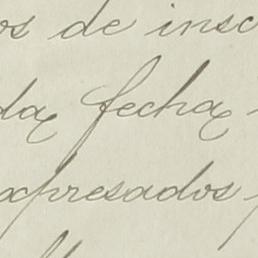 os de insc
da fecha
expresados